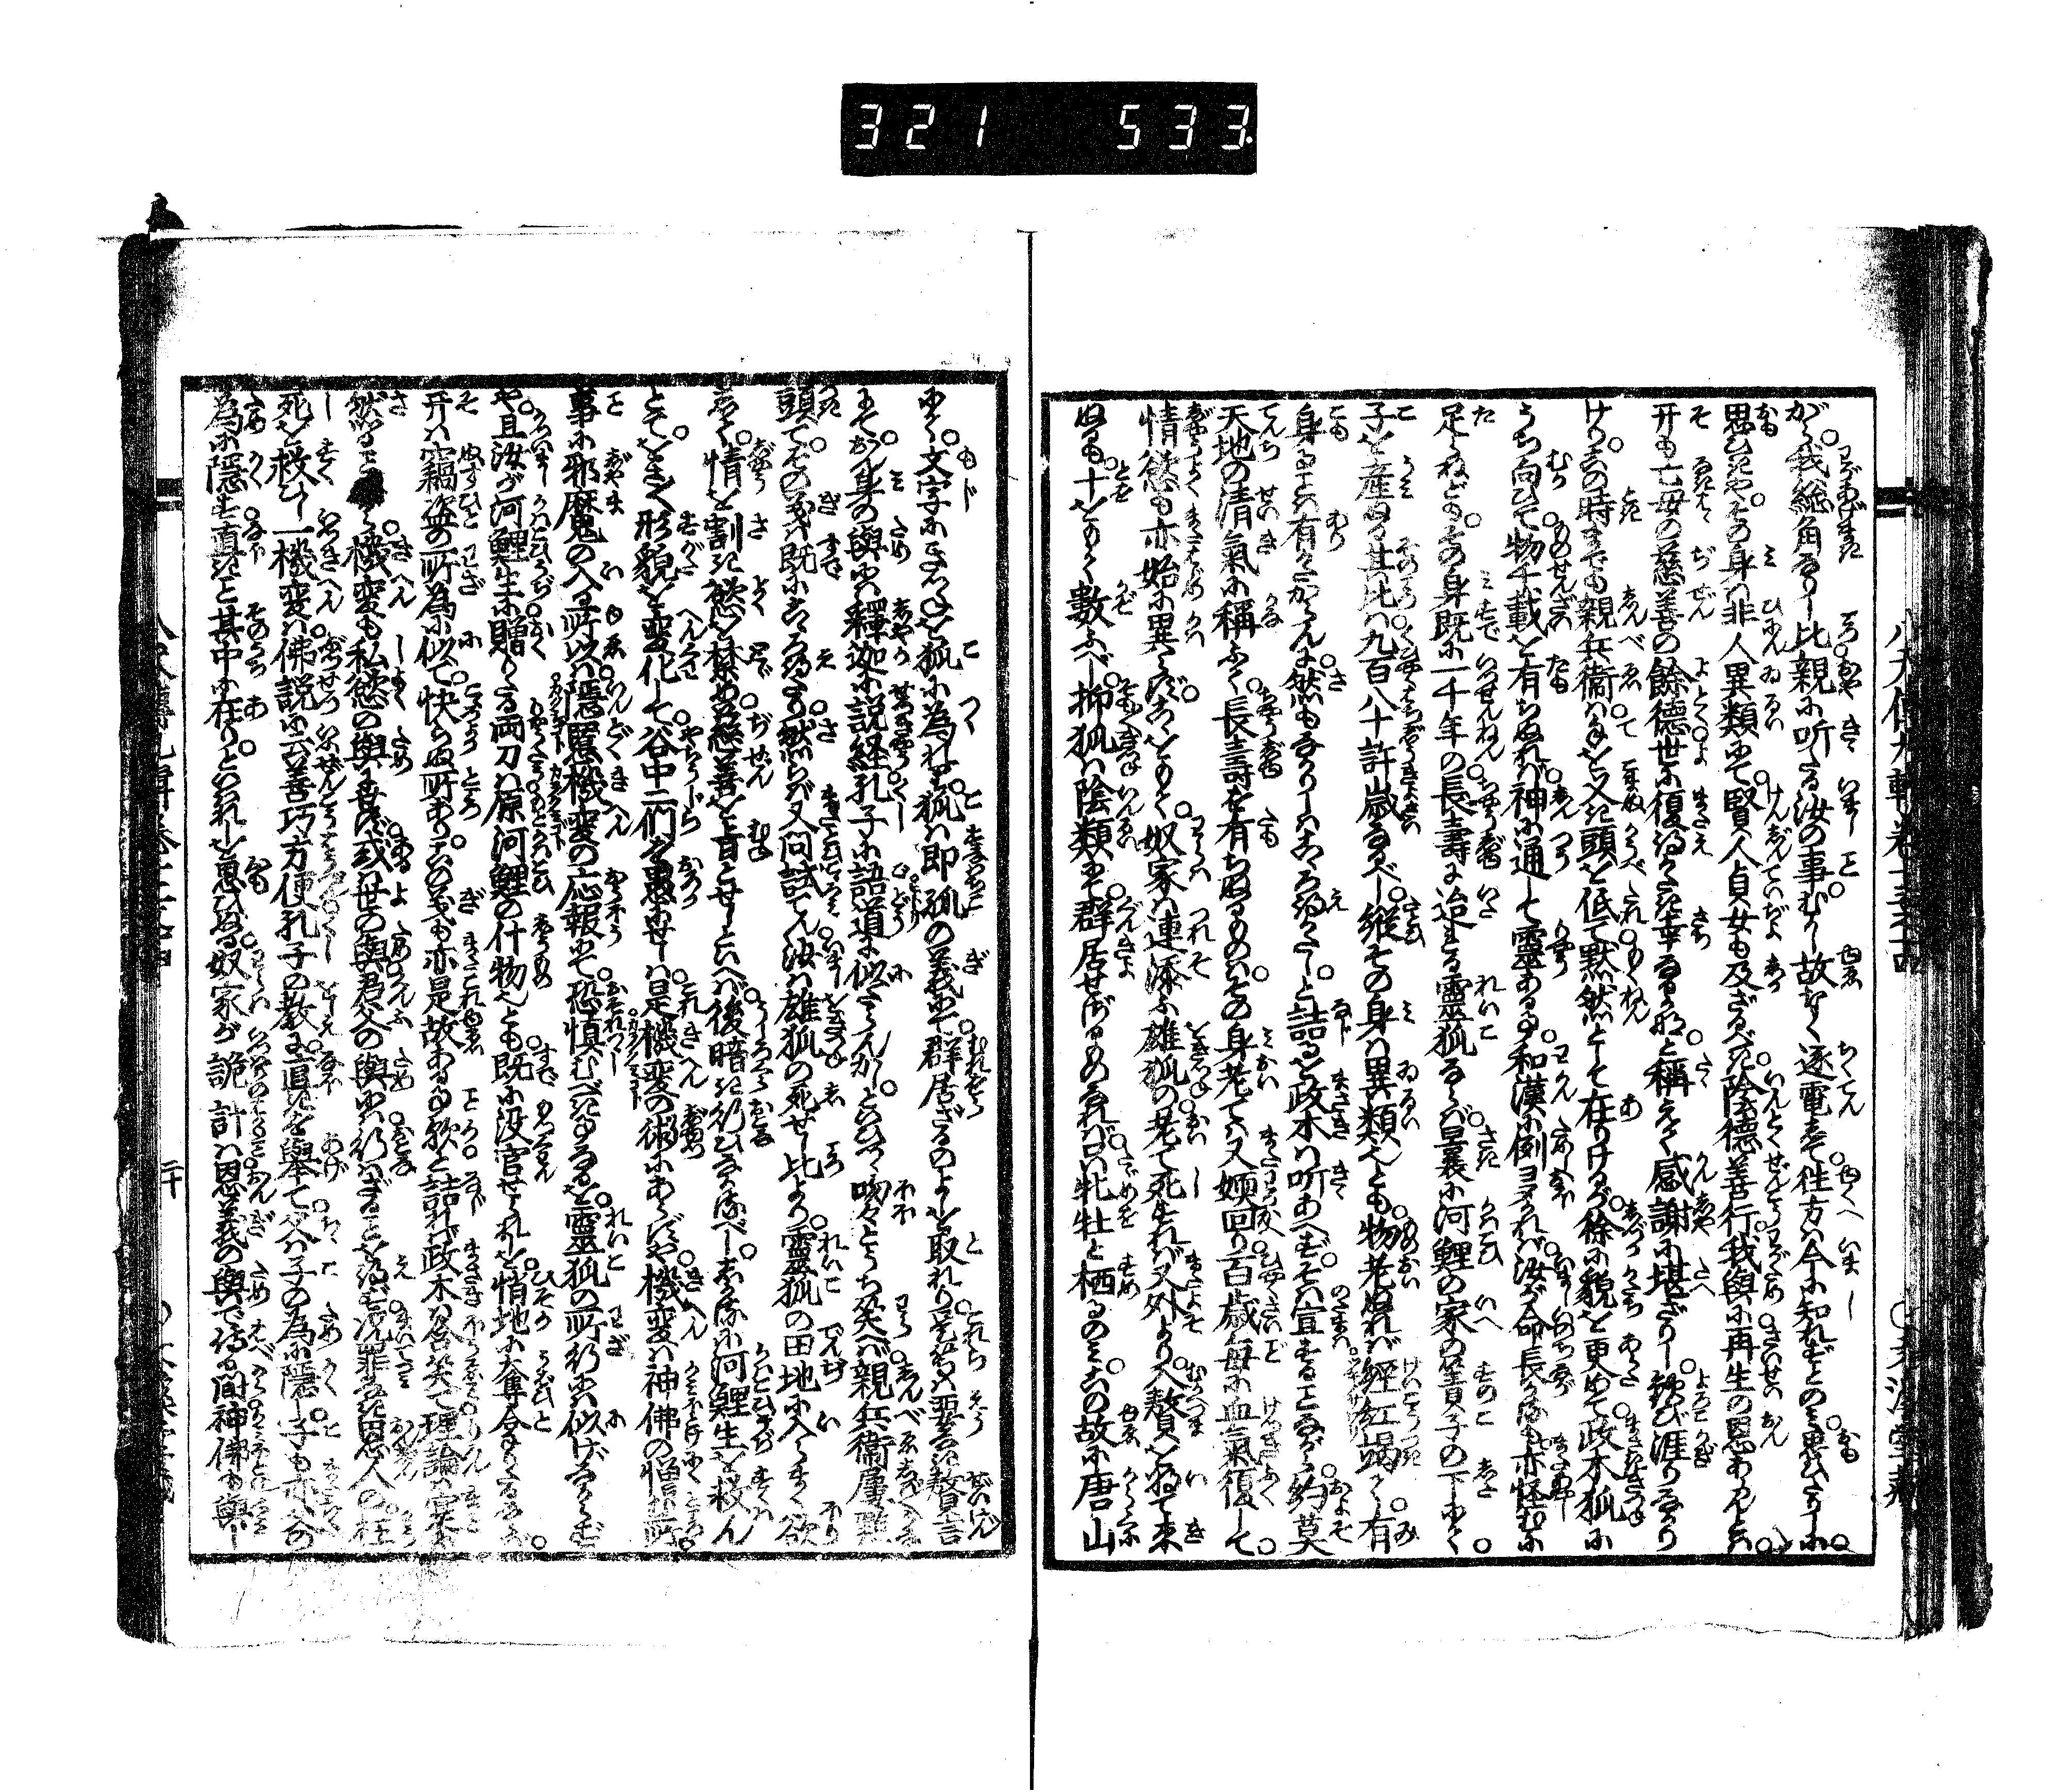 321 533
が、我総角なりし比、親に听たる汝の事、むかし故なく逐電して、往方は今に知れずとのみ思ひたりしに、
思ひきや、その身は非人異類にて、賢人貞女も及ざるべき、陰徳善行、我與に再生の恩あらんとは。
开も亡母の慈善の餘徳、世に復得がたき幸なるかな、と稱えて感謝に堪ざりし、歓び涯りなかり
けり。この時までも親兵衛は、手を叉き頭を低て、黙然として在りけるが、徐に貌を更めて、政木狐に
うち向ひて、物千載を有ちぬれば、神に通して靈あるよし、和漢に例ヨタあれば、汝が命長かるも、亦怪むに
足らねども、その身既に一千年の長壽に迨べる靈狐ならば、曩に河鯉の家の簀子の下にて、
子を産める其比は、九百八十許歳なるべし。縦その身は異類也とも、物老ぬれば經紅竭く、有
身ることは有べからん、然も子なかりしはこころ得がたし、と詰るを政木は听あへず、そは宣することながら、約莫
天地の清氣に稱ふて、長壽を有ちぬるものは、その身老てハ又嫩回り、百歳毎に血氣復して、
情慾も亦始に異ならず。ここをもて奴家は、連添ふ雄狐の老て死ぬれば、又外より入贅を得て来
ぬるも、十をもて數ふべし。抑狐は陰類にて、群居せざるものなれば、只牝牡と栖るのみ。この故に唐山
にて、文字にこれを狐に為れり。狐は即孤の義にて、群居ざるのよしを取れり。是等は要なき贅言
にて、おん身の與には釋迦に説経、孔子に語道に似たらんかし、といひつつ咲々とうち笑へば、親兵衛屡點
頭て、その義は既にこころ得たり。然らば又問試ん。汝は雄狐の死せし比より、靈狐の田地に入らまく欲
して、情を割き慾を禁め、慈善を旨とせしといへば、後暗き行ひなかるべし。しかるに河鯉生を救ん
とて、をさをさ形貌を変化して、谷中二們を愚にせしは、是機変の術にあらずや。機変は神佛の憎む所、
事に邪魔の入る所以は、隠慝機変の応報にて、恐慎むべきよしなるを、靈狐の所行には似げなからず
や。且汝が河鯉生に贈りたる両刀は、原河鯉の什物也とも、既に没官せられしを、悄地に奪令りたるならば、
开は竊盗の所為に似て、快からぬ所あり。この義も亦是故あるよし歟、と詰れば政木は含笑て、理論は寔に
然ることながら、機変も私慾の與にせず、或は世の與君父の與には、行はざることを得ず。况罪なき恩人の枉
死を救ひし一機変は、佛説に云善巧方便、孔子の教に直きを舉て、父は子の為に隠し、子も亦父の
為に隠す、直きこと其中に在り、といはれしを思ひぬる、奴家が詭計は恩義の與で侍る間、神佛も與し